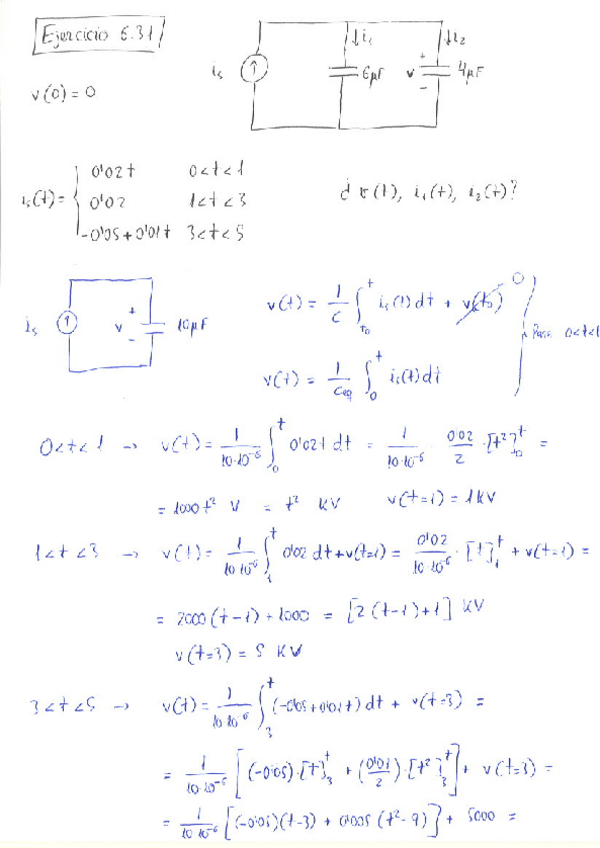 Ejercicio 6.31
↓i₁ ↓i₂
iₛ 6μF v + - 4μF
v(0) = 0
iₛ(t) = { 0'02t 0<t<1
0'02 1<t<3
-0'05+0'01t 3<t<5
¿ v(t), i₁(t), i₂(t)?
iₛ v + - 10μF
v(t) = 1/C ∫_{t₀}^{t} iₛ(t) dt + v(t₀) 0
Para 0<t<1
v(t) = 1/Ceq ∫_{0}^{t} iₛ(t) dt
0<t<1 → v(t) = 1/(10·10⁻⁶) ∫_{0}^{t} 0'02t dt = 1/(10·10⁻⁶) · 0'02/2 · [t²]_{t₀}^{t} =
= 1000t² V = t² KV v(t=1) = 1KV
1<t<3 → v(t) = 1/(10·10⁻⁶) ∫_{1}^{t} 0'02 dt + v(t=1) = 0'02/(10·10⁻⁶) · [t]_{1}^{t} + v(t=1) =
= 2000(t-1) + 1000 = [2(t-1)+1] KV
v(t=3) = 5 KV
3<t<5 → v(t) = 1/(10·10⁻⁶) ∫_{3}^{t} (-0'05+0'01t) dt + v(t=3) =
= 1/(10·10⁻⁶) [(-0'05)·[t]_{3}^{t} + (0'01/2)·[t²]_{3}^{t}] + v(t=3) =
= 1/(10·10⁻⁶) [(-0'05)(t-3) + 0'005(t²-9)] + 5000 =